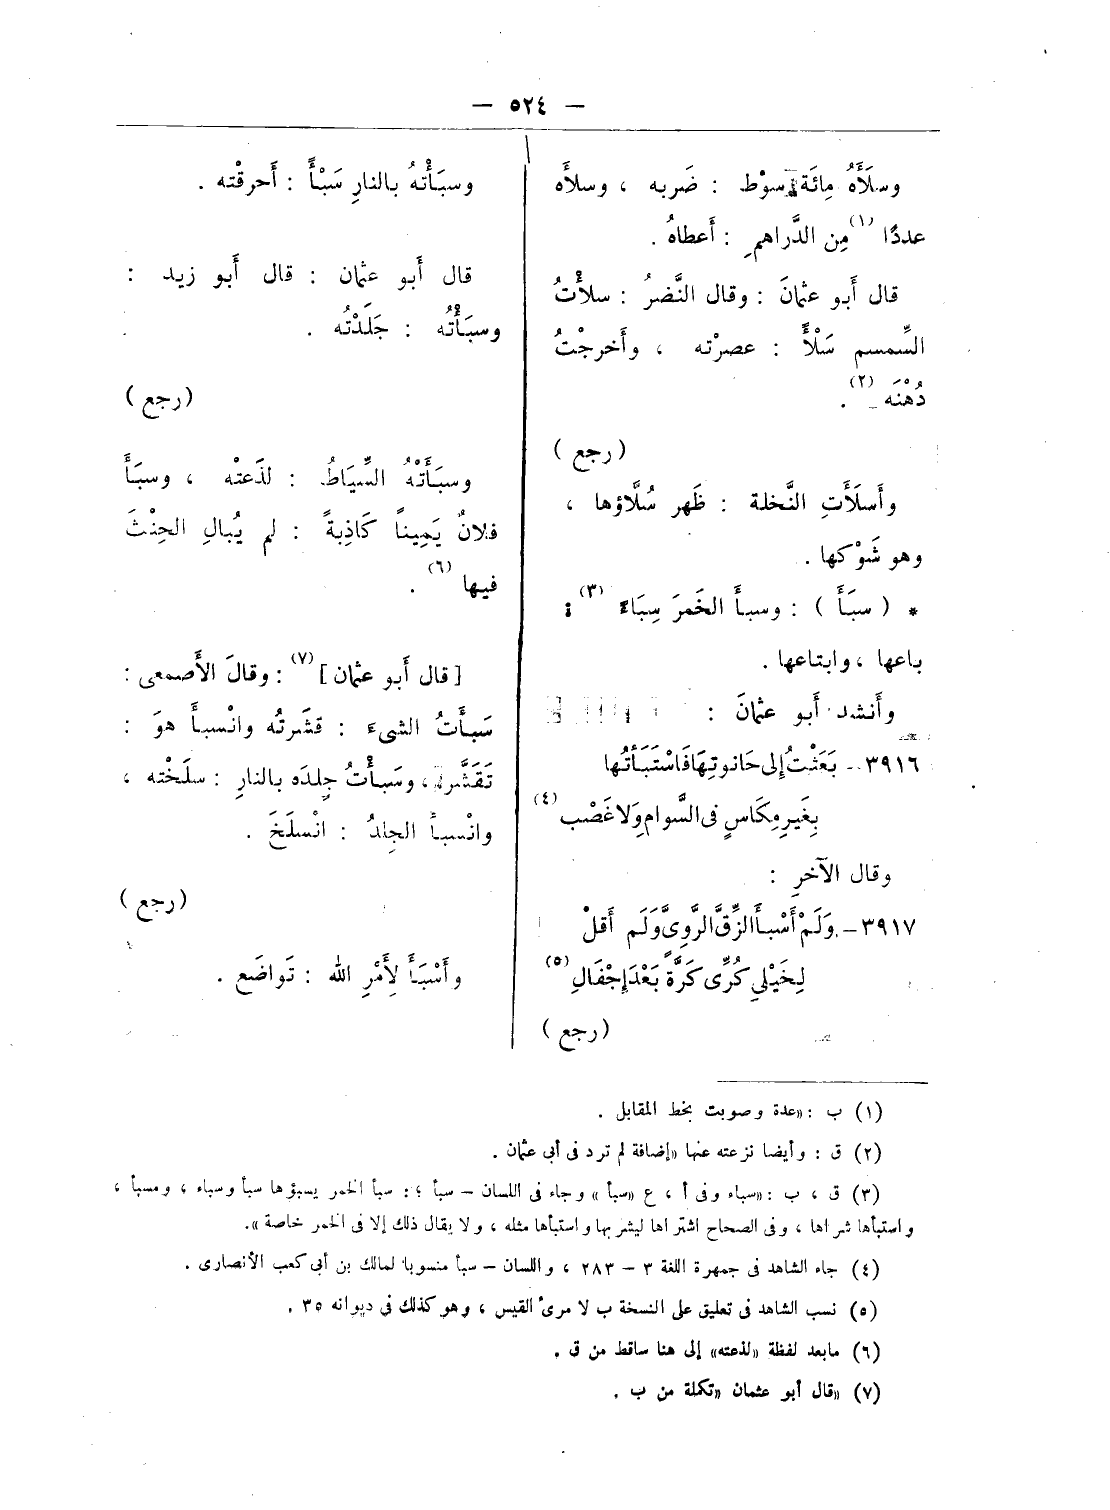 — ٥٢٤ —
وسلَأَهُ مِائَةَ سوْط : ضَربه ، وسلأَه
عددًا (١) مِن الدَّراهمِ : أَعطاهُ .
قال أَبو عثمانَ : وقال النَّضرُ : سلأْتُ
السِّمسم سَلْأً : عصرْته ، وأَخرجْتُ
دُهْنَه (٢) .
( رجع )
وأَسلَأَتِ النَّخلة : ظَهر سُلَّاؤها ،
وهو شَوْكها .
* ( سبَأَ ) : وسبأَ الخمَرَ سِبَاءً (٣) :
باعها ، وابتاعها .
وأَنشد أَبو عثمانَ :
٣٩١٦ – بَعَثْتُ إلى حَانوتِهَا فَاسْتَبَأتُها
بِغَيرِ مِكَاسٍ فى السَّوامِ وَلا غَصْب (٤)
وقال الآخرِ :
٣٩١٧ – وَلَمْ أَسْبأَ الزِّقَّ الرَّوِىَّ وَلَم أَقلْ
لِخَيْلِي كُرِّى كَرَّةً بَعْدَ إجْفَالِ (٥)
( رجع )
وسبَأْتهُ بالنارِ سَبْأً : أَحرقْته .
قال أَبو عثمان : قال أَبو زيد :
وسبَأْتُه : جَلَدْتُه .
( رجع )
وسبَأَتْهُ السِّيَاطُ : لذَعتْه ، وسبَأَ
فلانٌ يَمِيناً كَاذِبةً : لم يُبالِ الحِنْثَ
فيها (٦) .
[ قال أَبو عثمان ] (٧) : وقالَ الأَصمعى :
سَبأَتُ الشىءَ : قشَرتُه وانْسبأَ هوَ :
تَقَشَّر ، وسَبأْتُ جِلدَه بالنارِ : سلَخْته ،
وانْسبأَ الجِلدُ : انْسلَخَ .
( رجع )
وأَسْبَأَ لِأَمْرِ الله : تَواضَع .
(١) ب : «عدة وصوبت بخط المقابل .
(٢) ق : وأيضا نزعته عنها «إضافة لم ترد فى أبى عثمان .
(٣) ق ، ب : «سباء وفى أ ، ع «سبأ » وجاء فى اللسان – سبأ ؛ : سبأ الخمر يسبؤها سبأ وسباء ، ومسبأ ،
واستبأها شراها ، وفى الصحاح اشتراها ليشربها واستبأها مثله ، ولا يقال ذلك إلا فى الخمر خاصة ».
(٤) جاء الشاهد فى جمهرة اللغة ٣ – ٢٨٣ ، واللسان – سبأ منسوبا لمالك بن أبى كعب الأنصارى .
(٥) نسب الشاهد فى تعليق على النسخة ب لا مرئ القيس ، وهو كذلك فى ديوانه ٣٥ .
(٦) مابعد لفظة «لذعته» إلى هنا ساقط من ق .
(٧) «قال أبو عثمان «تكملة من ب .